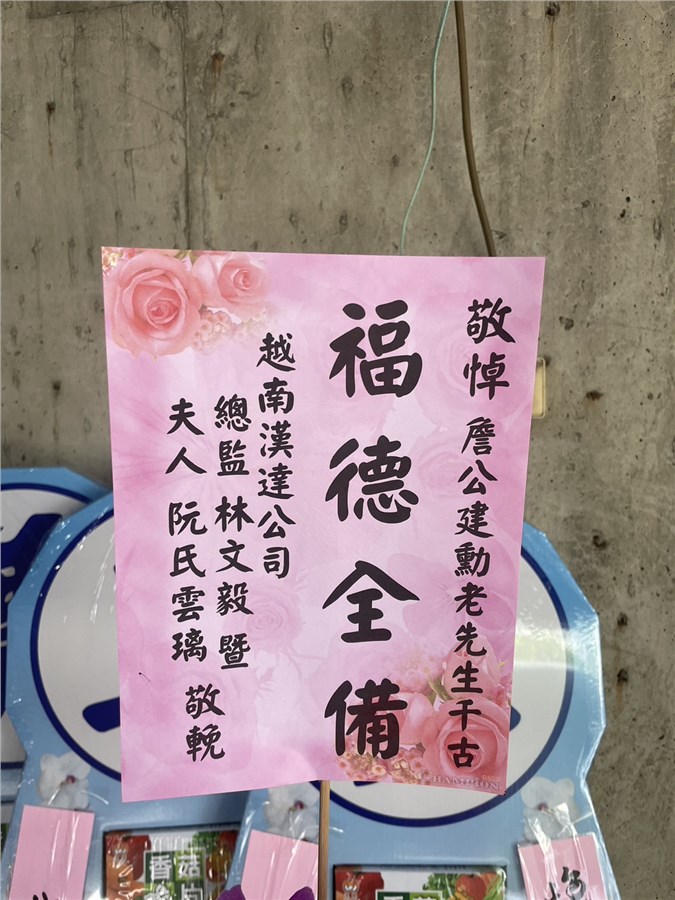 敬悼 詹公建勳老先生千古
福德全備
越南漢達公司
總監 林文毅 暨
夫人 阮氏雲璃 敬輓
香菇